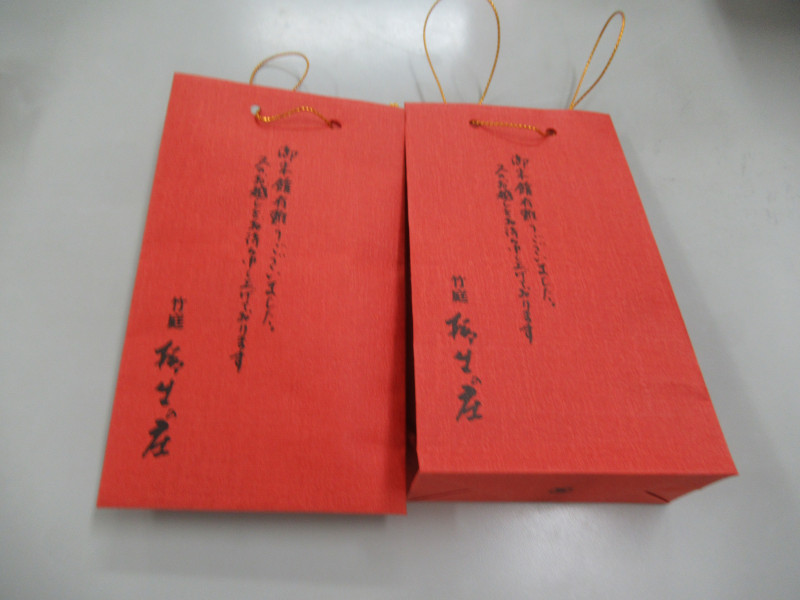 御来館有難うございました。
又のお越しをお待申し上げております
竹庭
柳生の庄
御来館有難うございました。
又のお越しをお待申し上げております
竹庭
柳生の庄